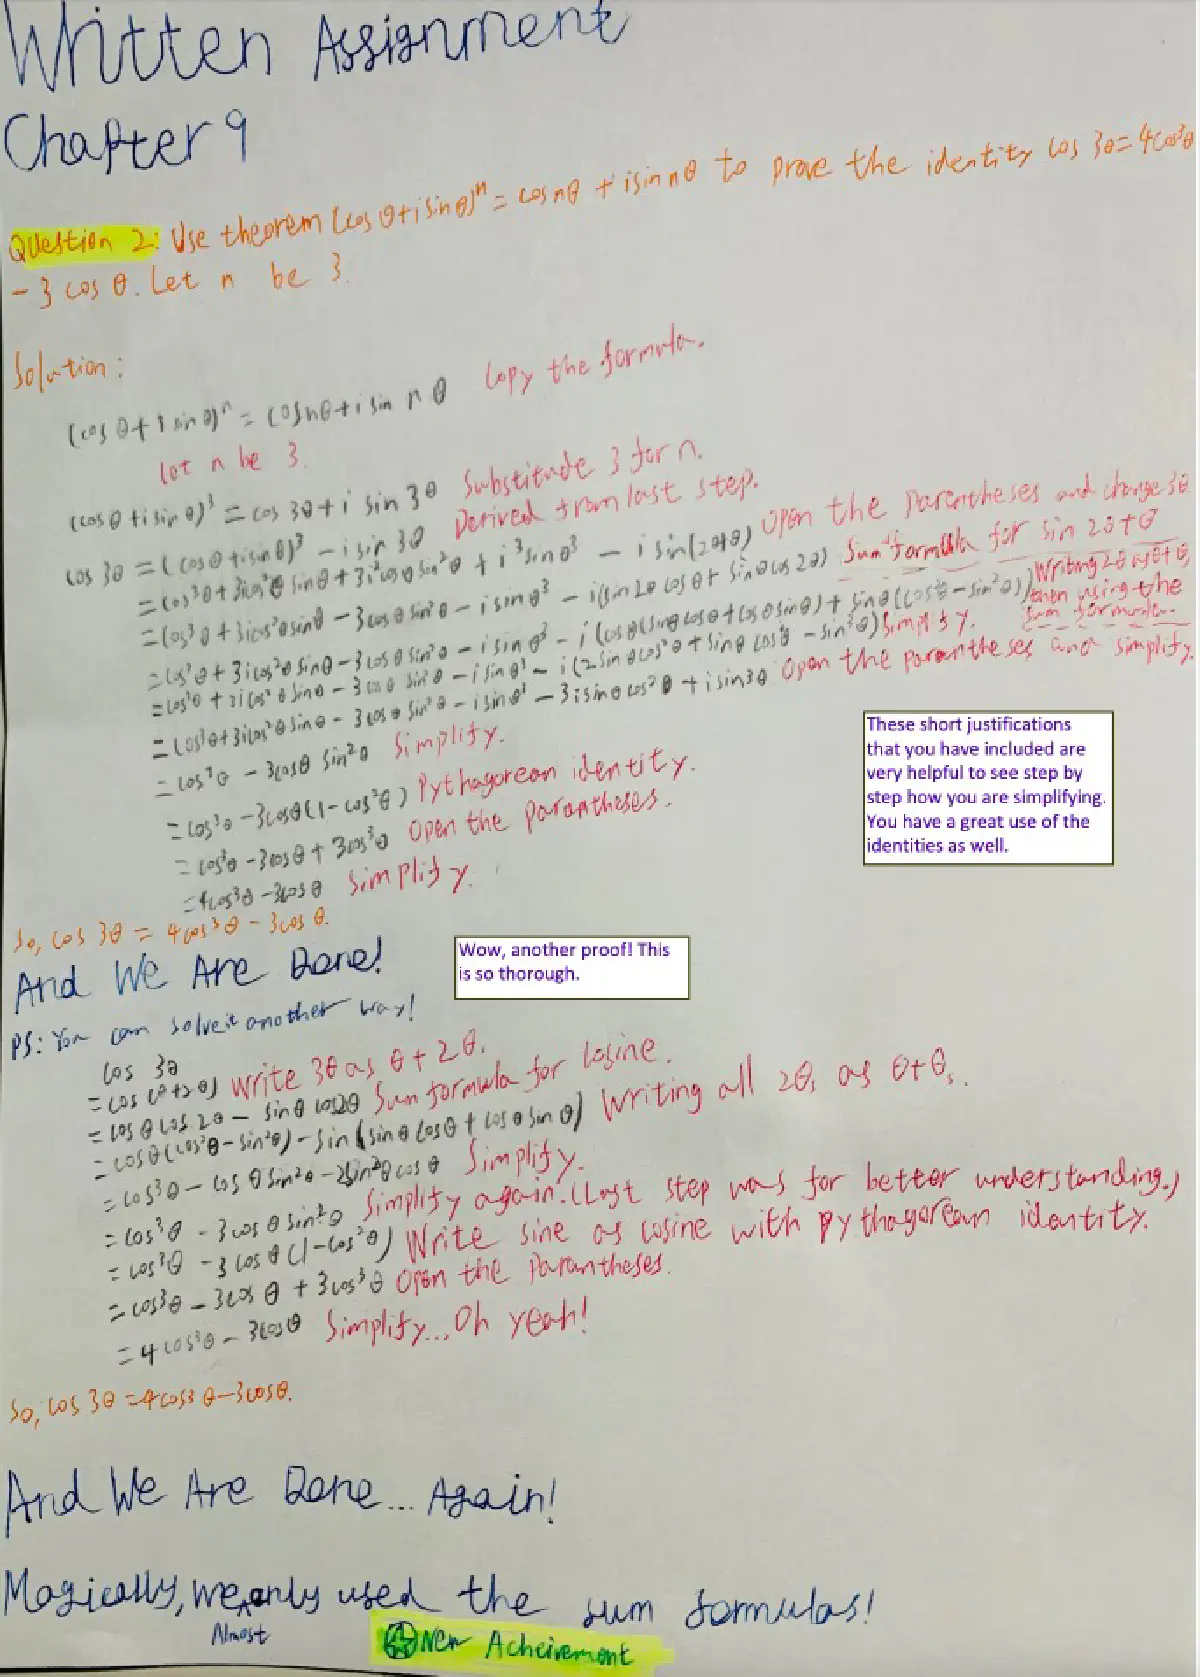 Written Assignment
Chapter 9
Question 2: Use theorem (cos θ+i sin θ)ⁿ = cos nθ + i sin nθ to prove the identity cos 3θ = 4cos³θ
- 3 cos θ. Let n be 3.
Solution:
(cos θ + i sin θ)ⁿ = cos nθ + i sin n θ Copy the formula.
let n be 3.
(cos θ + i sin θ)³ = cos 3θ + i sin 3θ Substitude 3 for n.
cos 3θ = (cos θ + i sin θ)³ - i sin 3θ Derived from last step.
= cos³θ + 3icos²θ sin θ + 3i²cosθ sin²θ + i³sinθ³ - i sin(2θ+θ) Open the Parentheses and change 3θ.
= cos³θ + 3icos²θsinθ - 3cosθ sin²θ - i sinθ³ - i(sin 2θ cosθ + sinθ cos 2θ) Sum formula for sin 2θ+θ
= cos³θ + 3icos²θ sinθ - 3cosθ sin²θ - i sinθ³ - i (cosθ(sinθcosθ + cosθsinθ) + sinθ(cos²θ - sin²θ)) Writing 2θ as θ+θ, then using the sum formula.
= cos³θ + 3icos²θ sinθ - 3cosθ sin²θ - i sinθ³ - i(2sinθcos²θ + sinθ cos²θ - sin³θ) Simplify.
= cos³θ + 3icos²θ sinθ - 3cosθ sin²θ - i sinθ³ - 3i sinθ cos²θ + i sin3θ Open the parantheses and simplify.
= cos³θ - 3cosθ sin²θ Simplify.
= cos³θ - 3cosθ(1 - cos²θ) Pythagorean identity.
= cos³θ - 3cosθ + 3cos³θ Open the parantheses.
= 4cos³θ - 3cosθ Simplify.
So, cos 3θ = 4cos³θ - 3cos θ.
These short justifications
that you have included are
very helpful to see step by
step how you are simplifying.
You have a great use of the
identities as well.
And We Are Done!
Wow, another proof! This
is so thorough.
PS: You can solve it another way!
cos 3θ
= cos (θ+2θ) Write 3θ as θ + 2θ.
= cosθ cos 2θ - sinθ cos2θ Sum formula for cosine.
= cosθ(cos²θ - sin²θ) - sin (sinθ cosθ + cosθ sinθ) Writing all 2θs as θ+θs.
= cos³θ - cosθ sin²θ - 2sin²θ cosθ Simplify.
= cos³θ - 3cosθ sin²θ Simplify again. (Last step was for better understanding.)
= cos³θ - 3cosθ (1 - cos²θ) Write sine as cosine with pythagorean identity.
= cos³θ - 3cos θ + 3cos³θ Open the Parantheses.
= 4cos³θ - 3cosθ Simplify... Oh yeah!
So, cos 3θ = 4cos³ θ - 3cosθ.
And We Are Done... Again!
Magically, we only used the sum formulas!
Almost
New Acheivement